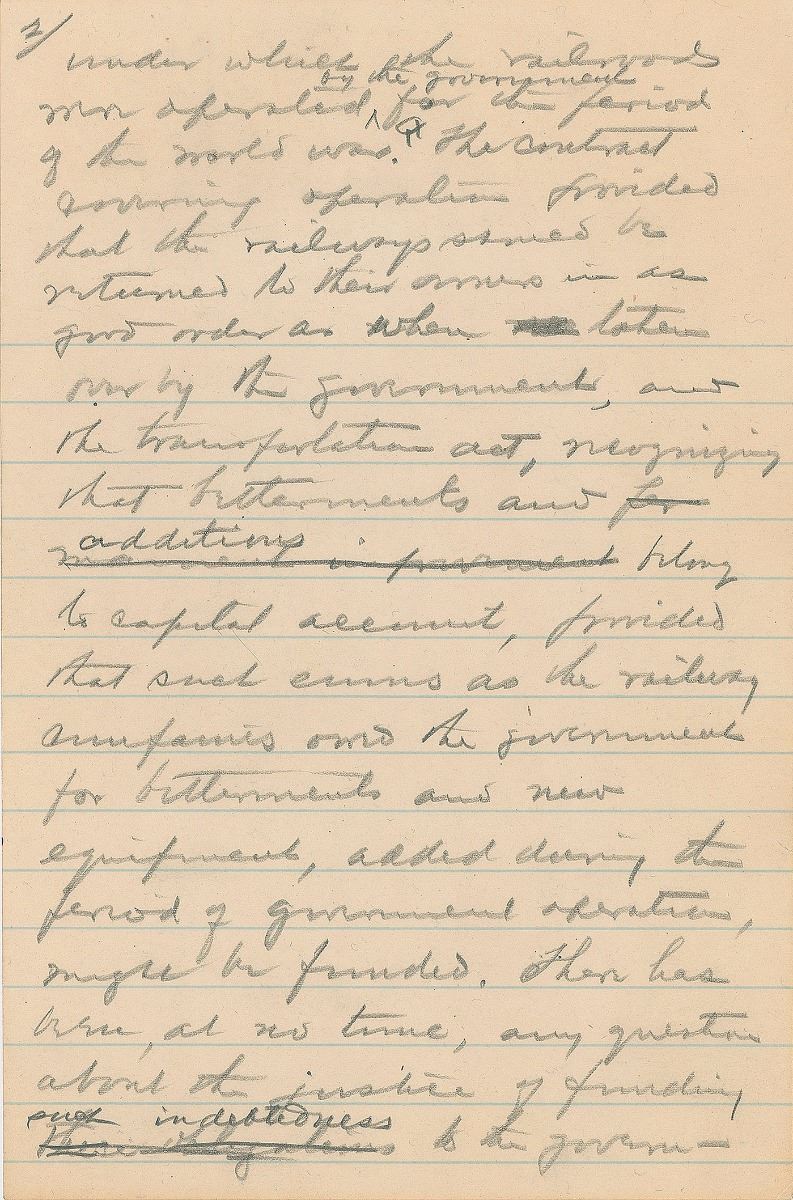 2/
under which the railroads
by the government
were operated ^ for the period
of the world war. The contract
covering operation provided
that the railways should be
returned to their owners in as
good order as when taken
over by the government, and
the transportation act, recognizing
that betterments and for
additions
improvement belong
to capital account, provided
that such sums as the railway
companies owed the government
for betterments and new
equipment, added during the
period of government operation,
might be funded. There has
been, at no time, any question
about the justice of funding
such indebtedness
these obligations to the govern-